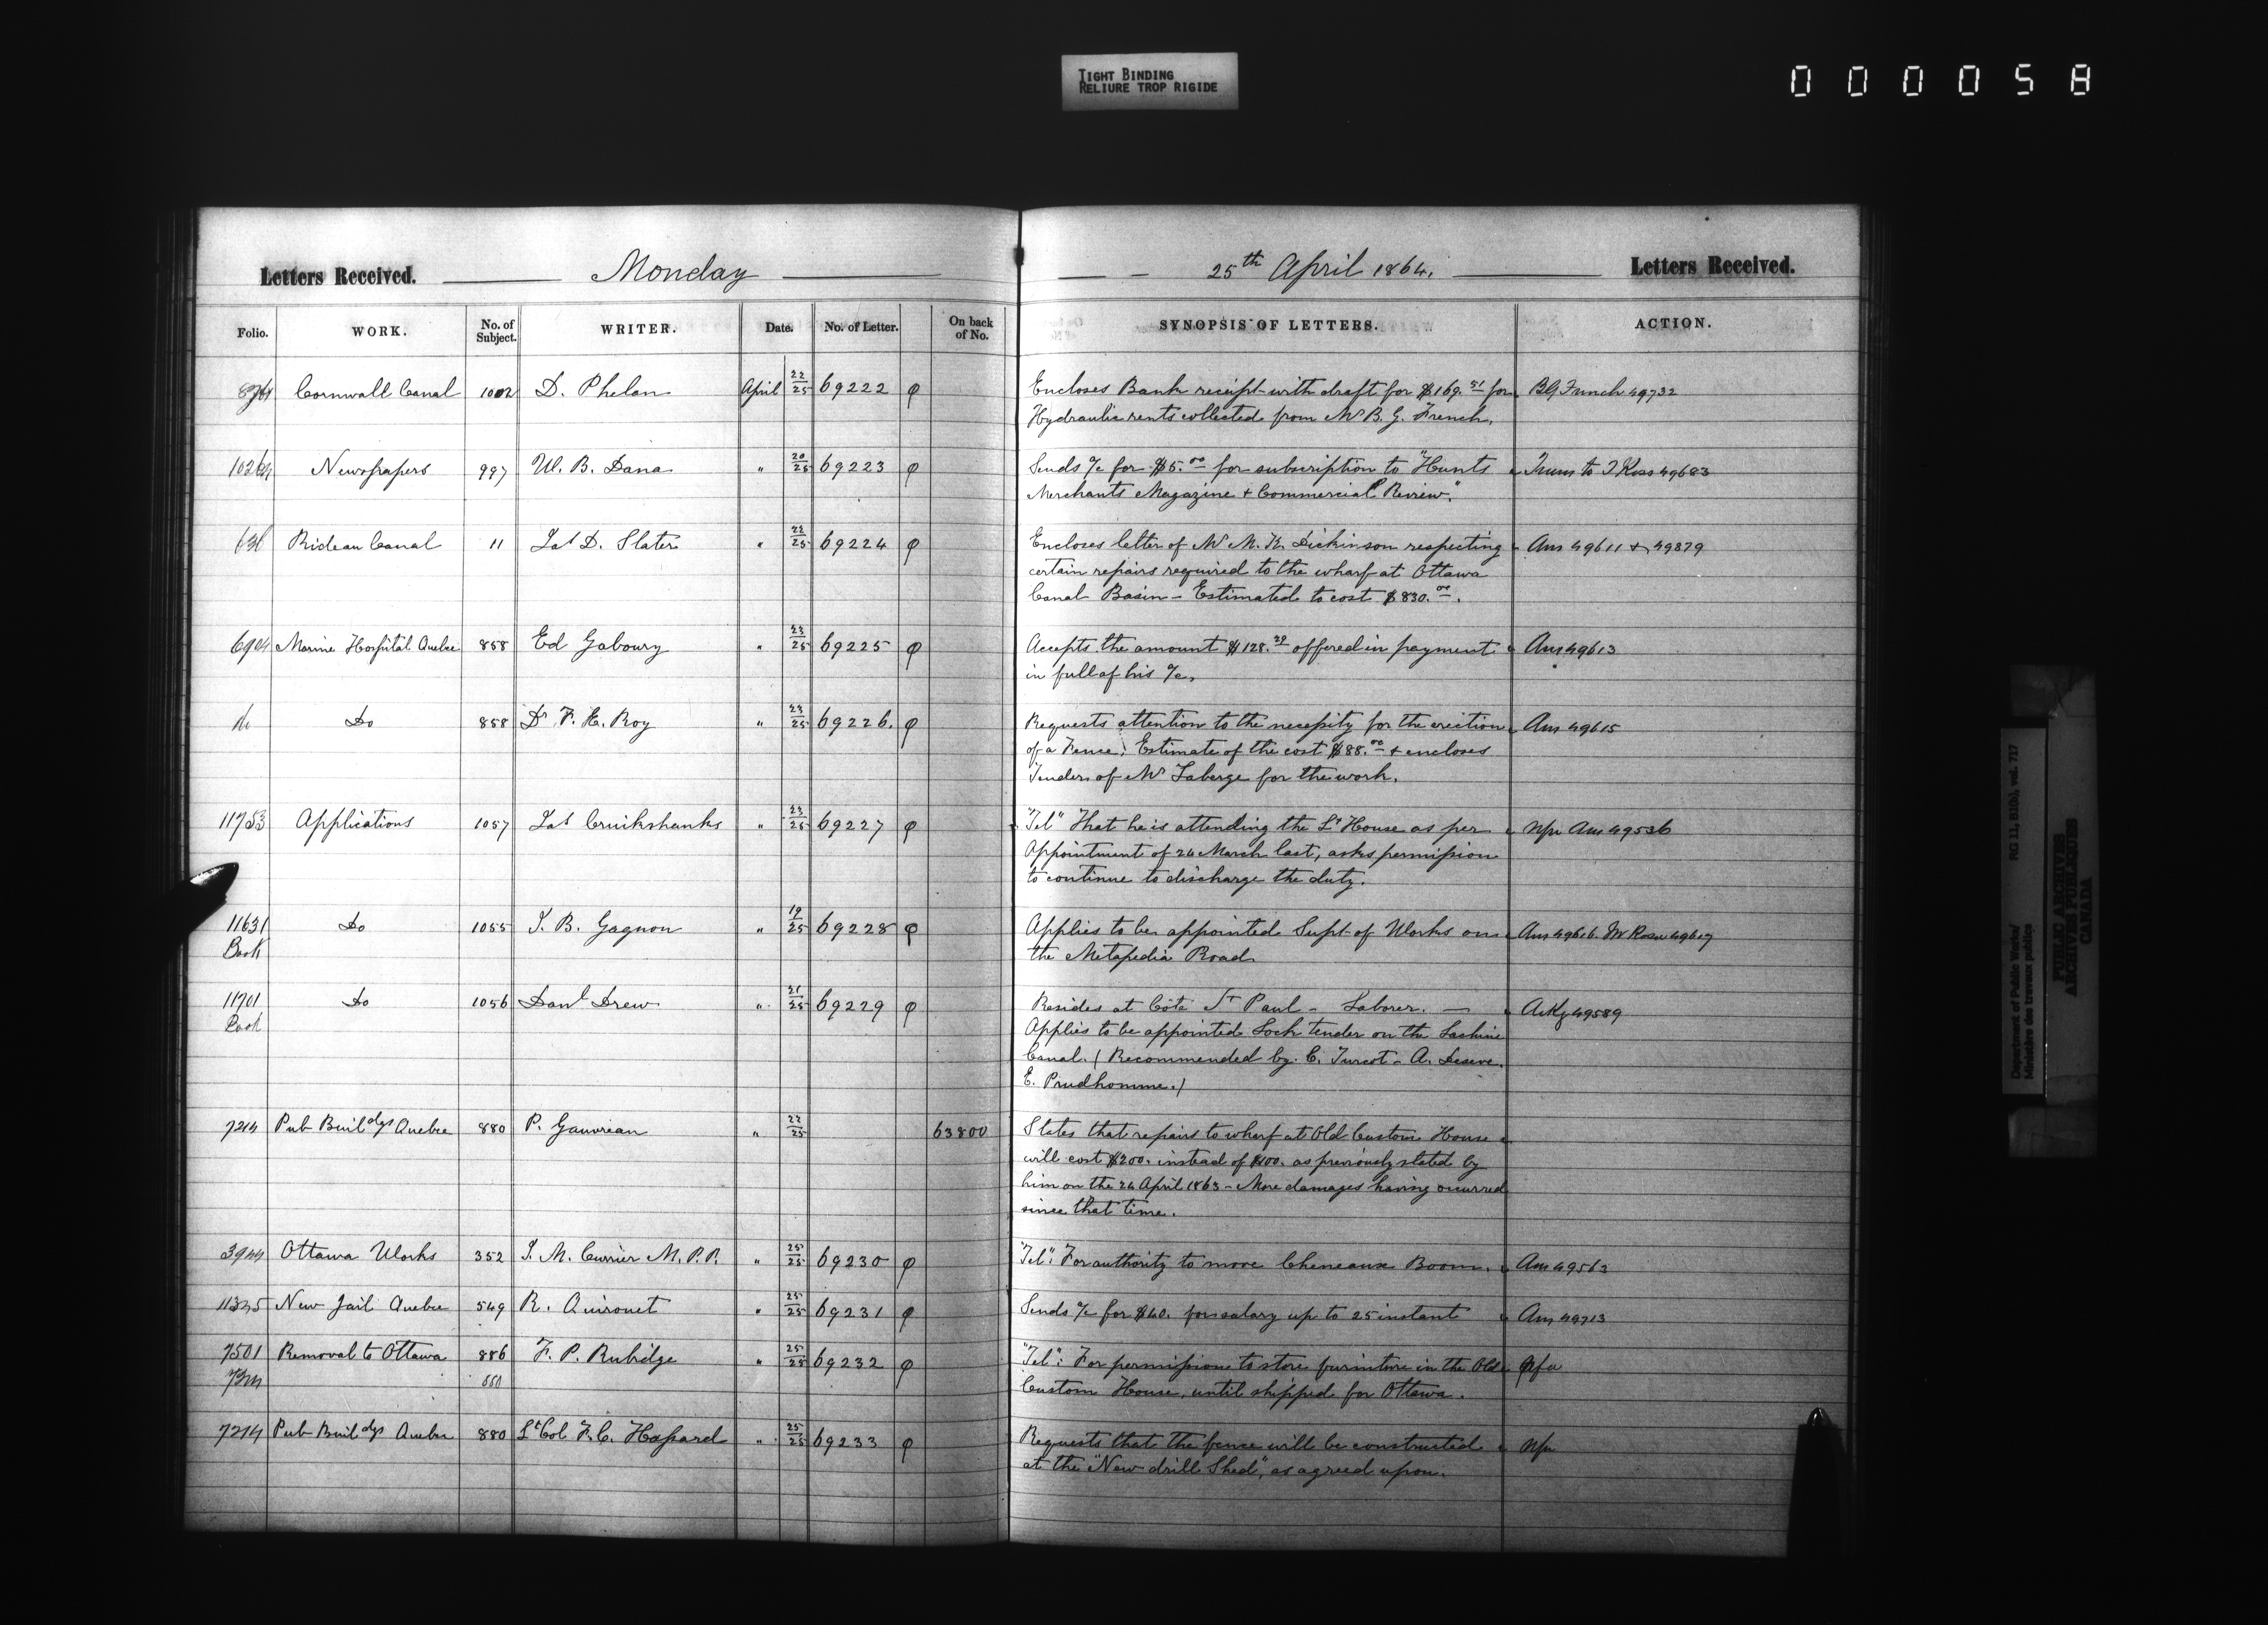 TIGHT BINDING
RELIURE TROP RIGIDE
000058
Letters Received. Monday 25th April 1864. Letters Received.
Folio. WORK. No. of Subject. WRITER. Date. No. of Letter. On back of No. SYNOPSIS OF LETTERS. ACTION.
Cornwall Canal 1002 D. Phelan April 22/25 69222 Encloses Bank receipt with draft for $169.51 for 49732
Hydraulic rents collected from Mr B. G. French.
Newspapers 997 W. B. Dana " 20/25 69223 Sends a/c for $5.00 for subscription to "Hunts 49683
Merchants Magazine & Commercial Review."
Rideau Canal 11 Jas D. Slater " 22/25 69224 Encloses letter of Mr M. K. Dickinson respecting Ans 49611 & 49879
certain repairs required to the wharf at Ottawa
Canal Basin - Estimated to cost $830.00.
Marine Hospital Quebec 858 Ed Gaboury " 23/25 69225 Accepts the amount $128.29 offered in payment Ans 49613
in full of his a/c.
do Do 858 Dr F. E. Roy " 23/25 69226. Requests attention to the necessity for the erection Ans 49615
of a Fence; Estimate of the cost $88.00 & encloses
Tender of Mr Laberge for the work.
11753 Applications 1057 Jas Cruikshanks " 23/25 69227 "Tel" That he is attending the Lt House as per Ans 49536
Appointment of 24 March last, asks permission
to continue to discharge the duty.
11631 Do 1055 J. B. Gagnon " 19/25 69228 Applies to be appointed Supt of Works on Ans 49616
Back the Metapedia Road
11701 Do 1056 Danl Drew " 21/25 69229 Resides at Côte St Paul - Laborer. — Ackg 49589
Back Applies to be appointed Lock tender on the Lachine
Canal. (Recommended by C. Turcot - A.
E. Prudhomme.)
7214 Pub Buildgs Quebec 880 P. Gauvreau " 22/25 63800 States that repairs to wharf at Old Custom House
will cost $200. instead of $100. as previously stated by
him on the 24 April 1863 - More damages having occurred
since that time.
Ottawa Works 352 J. M. Currier M.P.P. " 25/25 69230 "Tel": For authority to move Cheneaux Boom. Ans 49563
11325 New Jail Quebec 549 R. Quirouet " 25/25 69231 Sends a/c for $40. for salary up to 25 instant Ans 49713
7501 Removal to Ottawa 886 F. P. Rubidge " 25/25 69232 "Tel": For permission to store furniture in the Old
Custom House, until shipped for Ottawa.
7214 Pub Buildgs Quebec 880 Lt Col F. C. Hassard " 25/25 69233 Requests that the fence will be constructed
at the "New drill Shed", as agreed upon.
Department of Public Works/ RG 11, B1(b), vol. 717
Ministère des travaux publics
PUBLIC ARCHIVES
ARCHIVES PUBLIQUES
CANADA